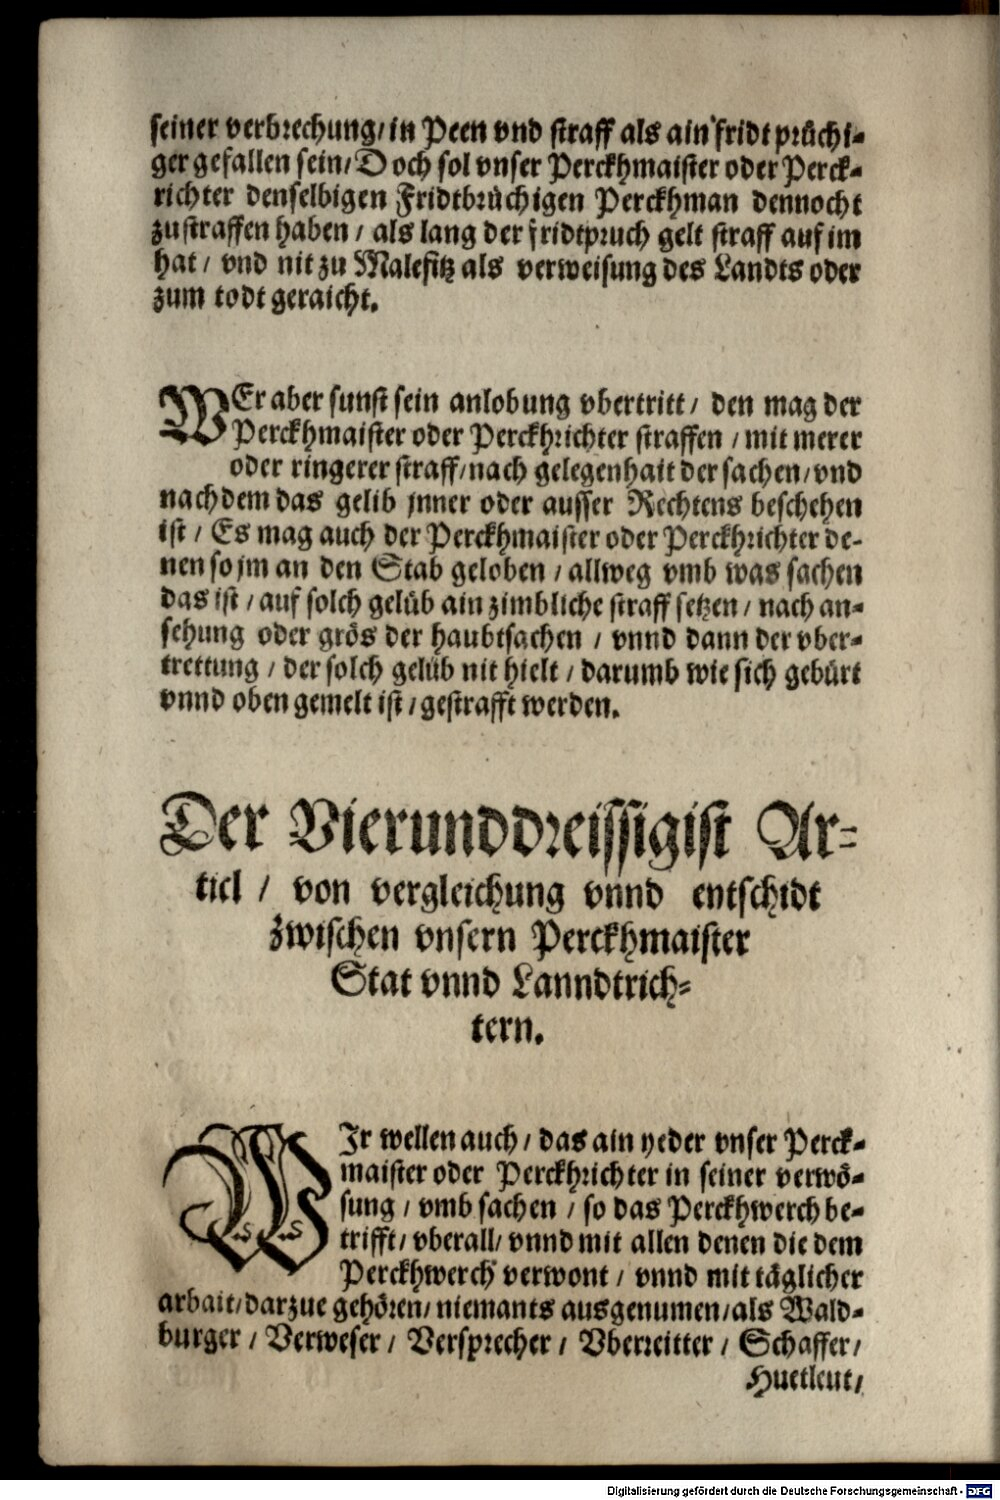 seiner verbrechung/ in Peen vnd straff als ain fridt prüchi-
ger gefallen sein/ Doch sol vnser Perckhmaister oder Perck-
richter denselbigen Fridtbrüchigen Perckhman dennocht
zustraffen haben / als lang der fridtpruch gelt straff auf im
hat / vnd nit zu Malefitz als verweisung des Landts oder
zum todt geraicht.
WEr aber sunst sein anlobung vbertritt / den mag der
Perckhmaister oder Perckhrichter straffen / mit merer
oder ringerer straff/ nach gelegenhait der sachen/ vnd
nachdem das gelib jnner oder ausser Rechtens beschehen
ist / Es mag auch der Perckhmaister oder Perckhrichter de-
nen so jm an den Stab geloben / allweg vmb was sachen
das ist / auf solch gelüb ain zimbliche straff setzen / nach an-
sehung oder grös der haubtsachen / vnnd dann der vber-
trettung / der solch gelüb nit hielt / darumb wie sich gebürt
vnnd oben gemelt ist / gestrafft werden.
Der Vierunddreissigist Ar-
ticl / von vergleichung vnnd entschidt
zwischen vnsern Perckhmaister
Stat vnnd Lanndtrich-
tern.
WIr wellen auch / das ain yeder vnser Perck-
maister oder Perckhrichter in seiner verwö-
sung / vmb sachen / so das Perckhwerch be-
trifft / vberall/ vnnd mit allen denen die dem
Perckhwerch verwont / vnnd mit täglicher
arbait/ darzue gehören/ niemants ausgenumen/ als Wald-
burger / Verweser / Versprecher / Vberreitter / Schaffer /
Huetleut /
Digitalisierung gefördert durch die Deutsche Forschungsgemeinschaft - DFG